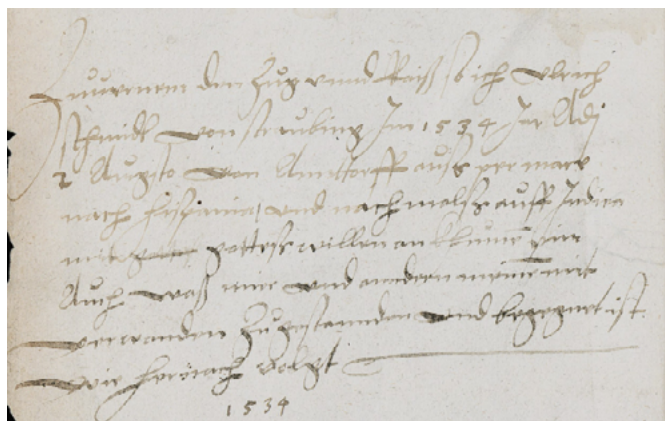 Zuuernem den Zug vnnd Raiß so ich Vlrich
Schmidt von straubing Im 1534 Jar Adj
2 Augsto von Anttorff auß per mare
nach hispania, vnd nachmalß auff Indien
mit gottes willen an khumen bin
Auch waß mir vnd anndern meinen mit
verwanden Zugestannden vnd begegnet ist.
Wie hernach volgt
1534